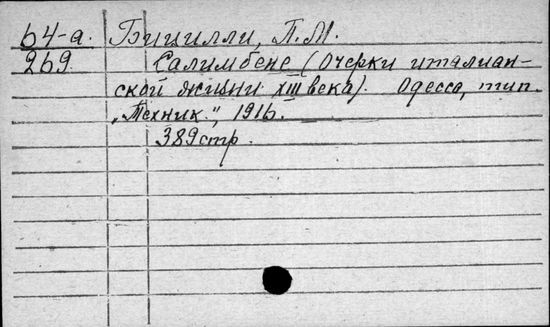 64-а. Бицилли, П.М.
269 Салимбене (Очерки италиан-
ской жизни XIII века). Одесса, тип.
„Техник.", 1916.
389стр.